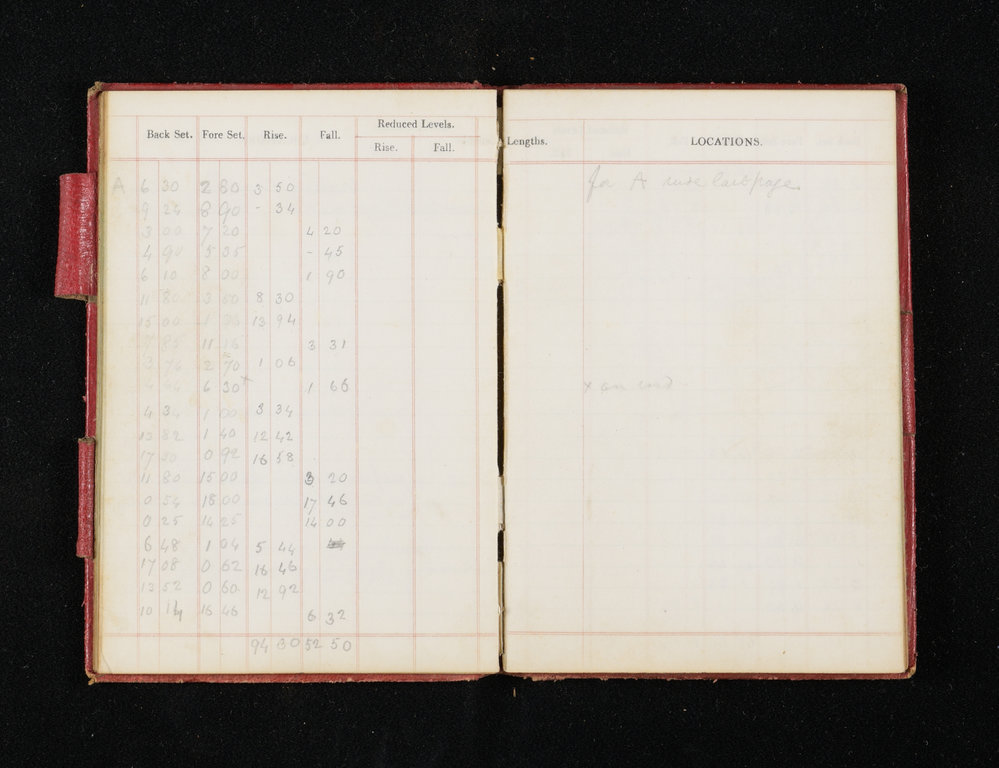 Back Set. Fore Set. Rise. Fall. Reduced Levels.
Rise. Fall.
A 6 30 2 80 3 50
9 24 8 90 - 34
3 00 7 20 4 20
4 90 5 35 - 45
6 10 8 00 1 90
11 80 3 50 8 30
15 00 1 06 13 94
7 85 11 16 3 31
3 76 2 70 1 06
4 64 6 30 x 1 66
4 34 1 00 3 34
13 82 1 40 12 42
17 50 0 92 16 58
11 80 15 00 3 20
0 54 18 00 17 46
0 25 14 25 14 00
6 48 1 04 5 44
17 08 0 62 16 46
13 52 0 60 12 92
10 14 16 46 6 32
94 30 52 50
Lengths. LOCATIONS.
for A last page
x on